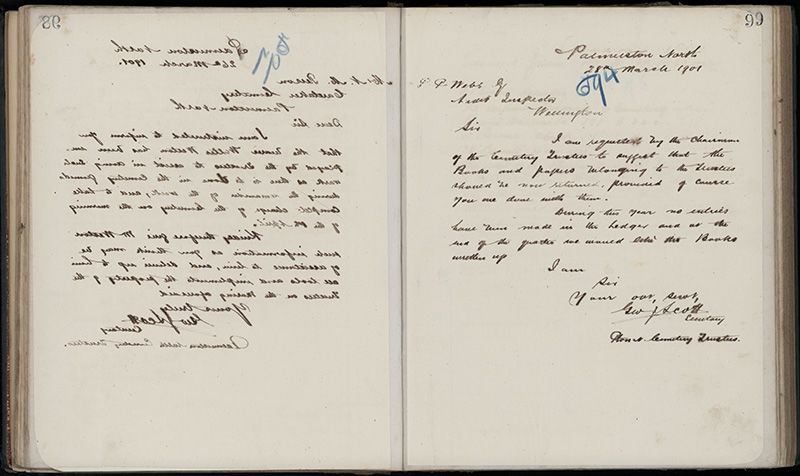 98
Palmerston North
26th March 1901.
Mr N. M.
Caretaker Cemetery
Palmerston North
Dear Sir
I am instructed to inform you
that Mr Walter has been em
ployed by the Trustees to assist in doing such
work as there is to be done in the Cemetery grounds
during the remainder of the week, and to take
complete charge of the Cemetery on the morning
of the April.
Kindly therefore give Mr
such information as you think may be
of assistance to him, and deliver up to him
all tools and implements the property of the
Trustees on the morning aforesaid
Yours truly
Geo J Scott
Cemetery
Palmerston North Cemetery Trustees.
99
Palmerston North
28th March 1901
694
G P Webb Esq
Audit Inspector
Wellington
Sir
I am requested by the Chairman
of the Cemetery Trustees to suggest that the
Books and papers belonging to the Trustees
should be now returned, provided of course
you are done with them.
During this year no entries
have been made in the Ledger and at the
end of the quarter we would like the Books
written up
I am
Sir
Your obt, servt,
Geo J Scott
Cemetery
Trustees.